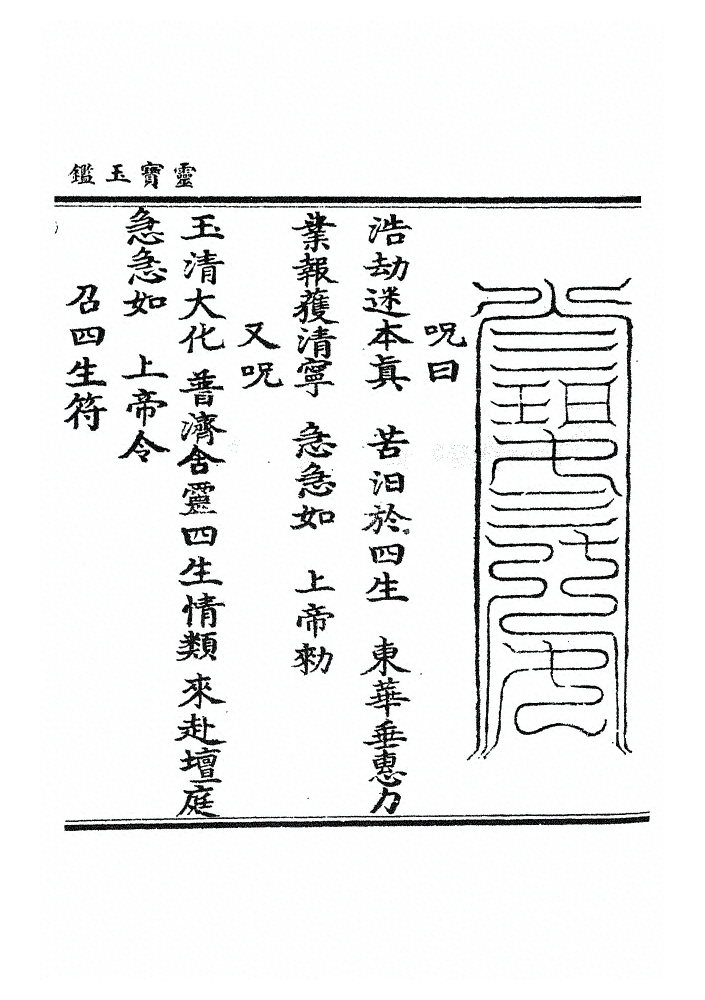 靈寶玉鑑
呪曰
浩劫迷本真 苦汩於四生 東華垂惠力
業報獲清寧 急急如 上帝勅
又呪
玉清大化 普濟含靈 四生情類 來赴壇庭
急急如 上帝令
召四生符